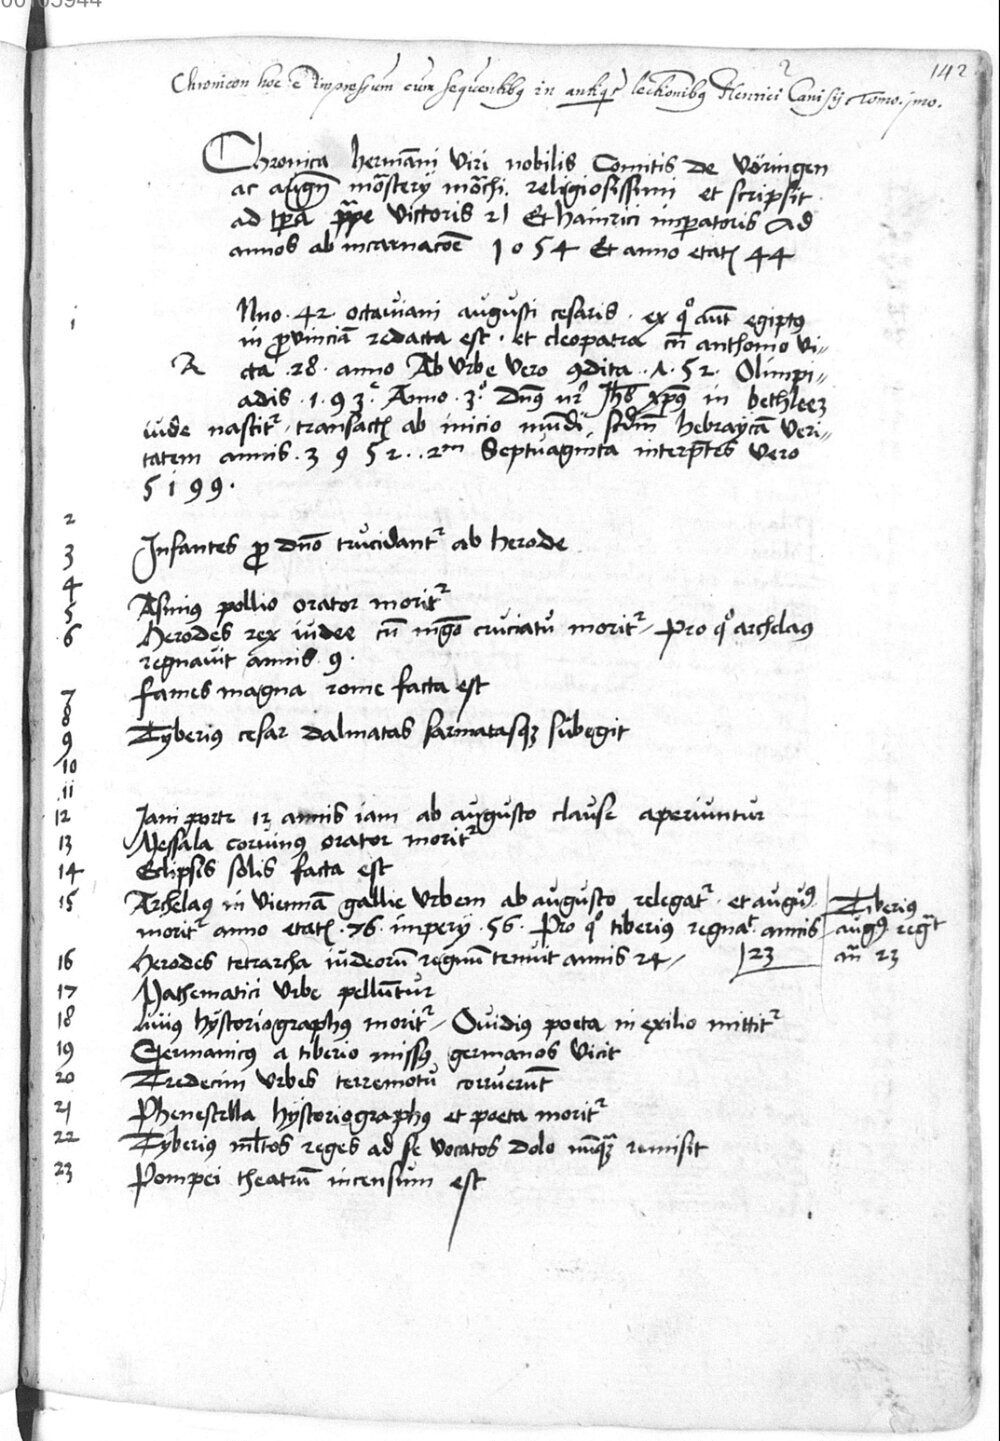 00103944
142
Chronicon hoc ē impressum cum sequentibꝰ in antiqꝭ lectionibꝰ Henrici Canisij Tomo. pro.
Chronica hermāni viri nobilis Comitis de vöringen
ac augēn mōstery mōchi religiosissimi et scripsit
ad tp̄a pp̄e victoris 2i Et hainrici impatoris Ad
annos ab incarnacōe 1054 Et anno etatꝭ 44
1 Nno . 42 octauiani augusti cesaris . ex qͦ aūt egiptꝰ
in ꝓvinciā redacta est . et cleopatra cū anthonio vi„
A cta . 28 . anno Ab vrbe vero ꝯdita . 752 . Olimpi„
adis . 193 . Anno . 3ͦ. Dn̄s nr̄ Jhs xp̄s in bethleez
iude nascitr, transactꝭ ab inicio mūdi, scdm hebraycā veri„
tatem annis . 3952 . 2m Septuaginta interp̄tes vero
5199 .
2
3 Infantes ꝓ dn̄o trucidantr ab herode
4 Asinius pollio orator moritr
5 Herodes rex iudee cū mgͦ cruciatu moritr, Pro qͦ archelaꝰ
6 regnauit annis . 9 .
fames magna rome facta est
7
8 Tyberius cesar dalmatas sarmatasqꝫ subegit
9
10
11
12 Jani porte 12 annis iam ab augusto clause aperiuntur
13 Messala coruinꝰ orator moritr
14 Eclipsis solis facta est
15 Archelaꝰ in viennā gallie vrbem ab augusto relegatr . et augusꝰ
moritr anno etatꝭ . 76 . impery . 56 . Pro qͦ tiberius regnat annis
23
Tiberius
augꝰ regt
an̄ 23
16 Herodes tetrarcha iudeorū regnū tenuit annis 24,
17 Mathematici vrbe pelluntur
18 Liuiꝰ hystoriographꝰ moritr, Ouidius poeta in exilio mittitr
19 Germanicꝰ a tiberio missꝰ germanos vicit
20 Tredecim vrbes terremotu corruerūt
21 Phenestella hystoriographꝰ et poeta moritr
22 Tyberius ml̄tos reges ad se vocatos dolo nūqꝫ remisit
23 Pompei theatrū incensum est